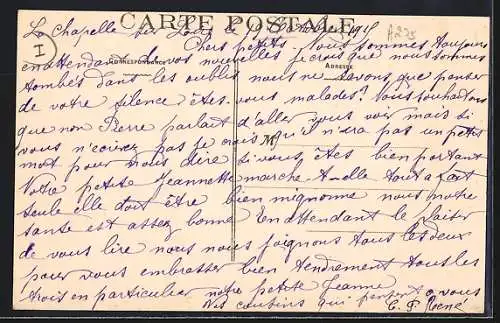 CARTE POSTALE
CORRESPONDANCE
ADRESSE
I
M
La Chapelle sur Loire le 1915
Chers petits. Nous sommes toujours
en attendant de vos nouvelles je crois que nous sommes
tombés dans les oublis nous ne savons que penser
de votre silence êtes-vous malades? Nous souhaitons
que non Pierre parlait d'aller vous voir mais si
vous n'ecrivez pas je crois qu'il n'ira pas un petit
mot pour nous dire si vous êtes bien portant
Votre petite Jeannette marche t'nelle tout a fait
seule elle doit être bien mignonne nous notre
santé est assez bonne En attendant le plaisir
de vous lire nous nous joignons tous les deux
pour vous embrasser bien tendrement tous les
trois en particulier notre petite Jeanne
Vos cousins qui pensent a vous
E. P René